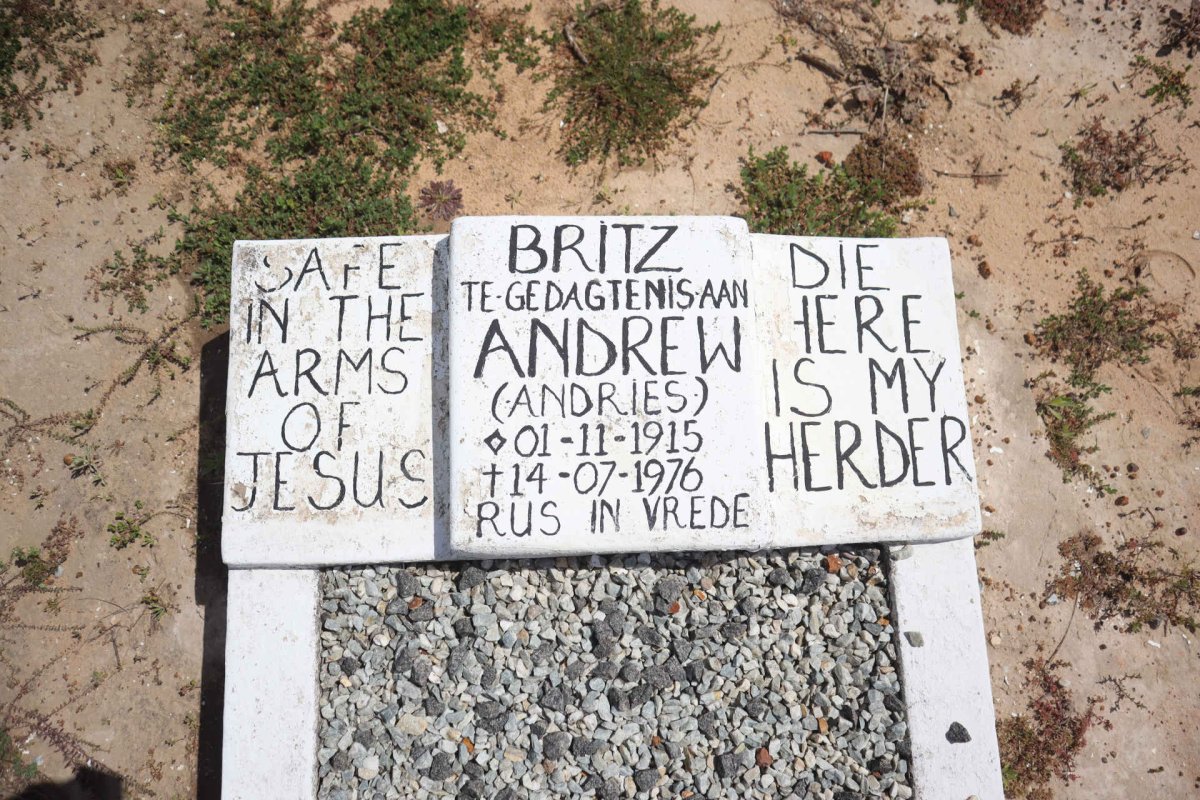 SAFE
IN THE
ARMS
OF
JESUS
BRITZ
TE·GEDAGTENIS·AAN
ANDREW
(·ANDRIES·)
◇01-11-1915
†14-07-1976
RUS IN VREDE
DIE
HERE
IS MY
HERDER